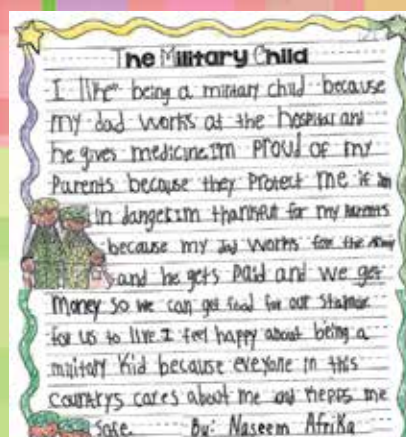 The Military Child
I like being a military child because
my dad works at the hospital and
he gives medicine.im proud of my
Parents because they Protect me if im
in danger.im thankful for my parents
because my dad works for the army
and he gets Paid and we get
money so we can get food for our
for us to live.I feel happy about being a
military Kid because everyone in this
countrys cares about me and keeps me
safe. By: Naseem Afrika